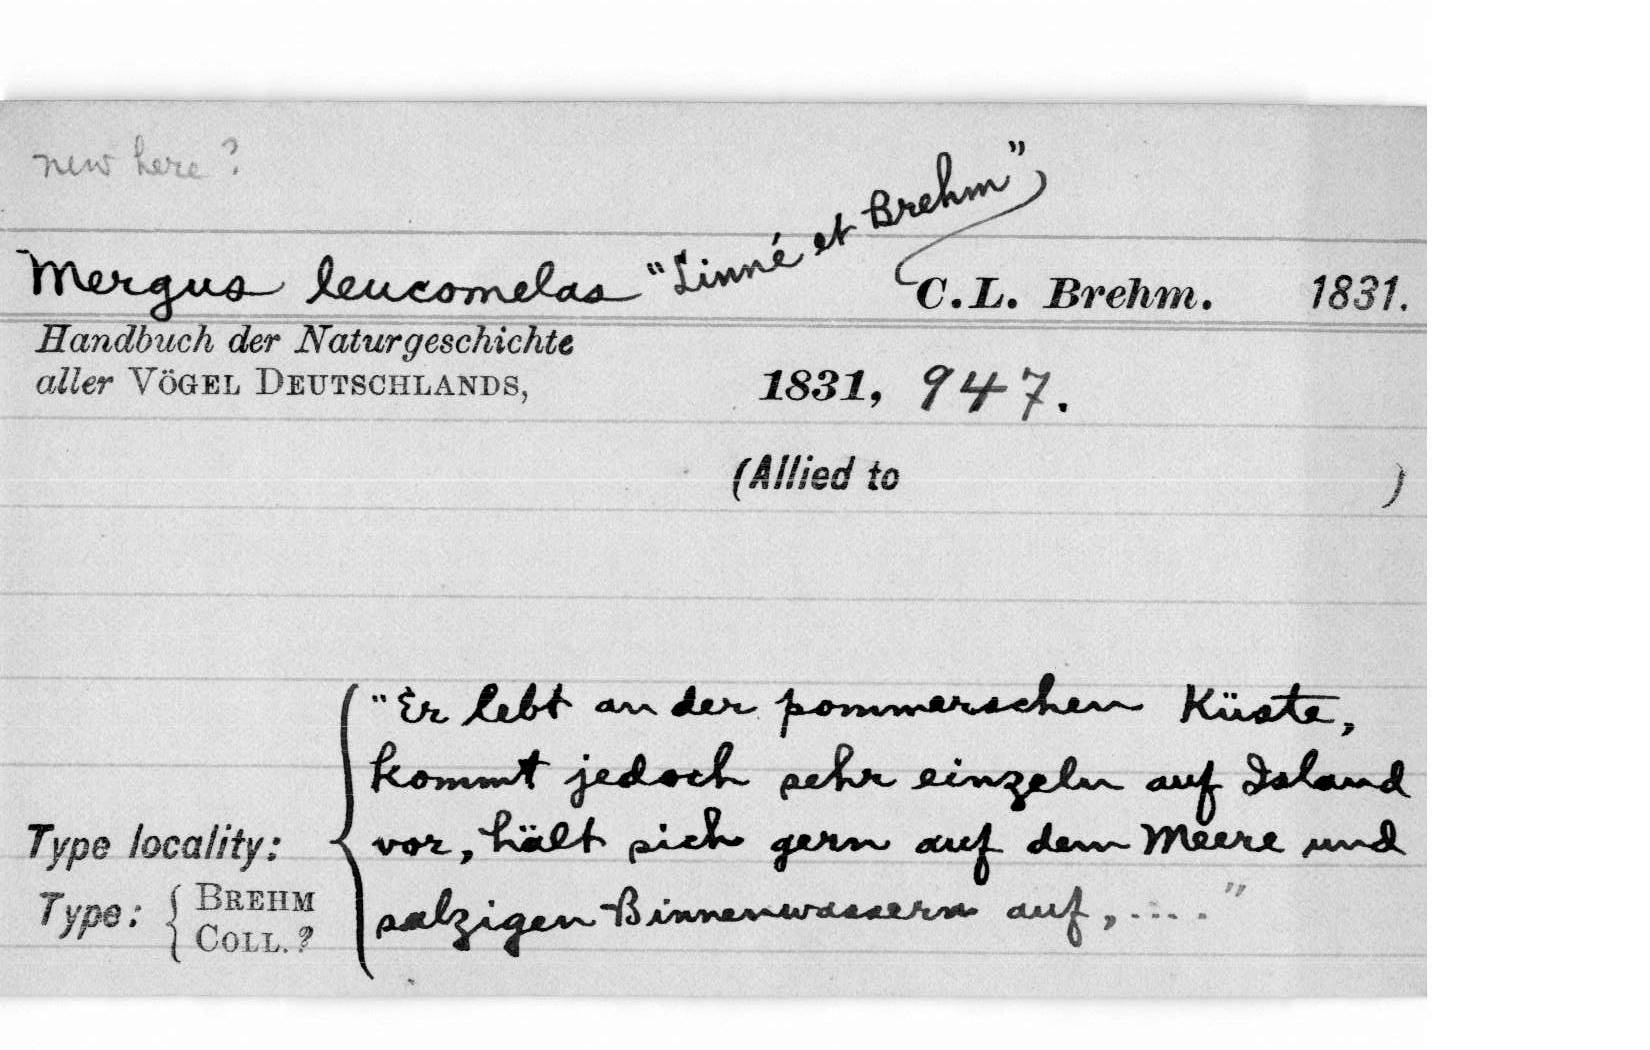 new here?
Mergus leucomelas "Linné et Brehm" C.L. Brehm. 1831.
Handbuch der Naturgeschichte
aller VÖGEL DEUTSCHLANDS, 1831, 947.
(Allied to )
"Er lebt an der pommerschen Küste,
kommt jedoch sehr einzeln auf Island
Type locality: vor, hält sich gern auf dem Meere und
Type: BREHM COLL.? salzigen Binnenwassern auf, ...."